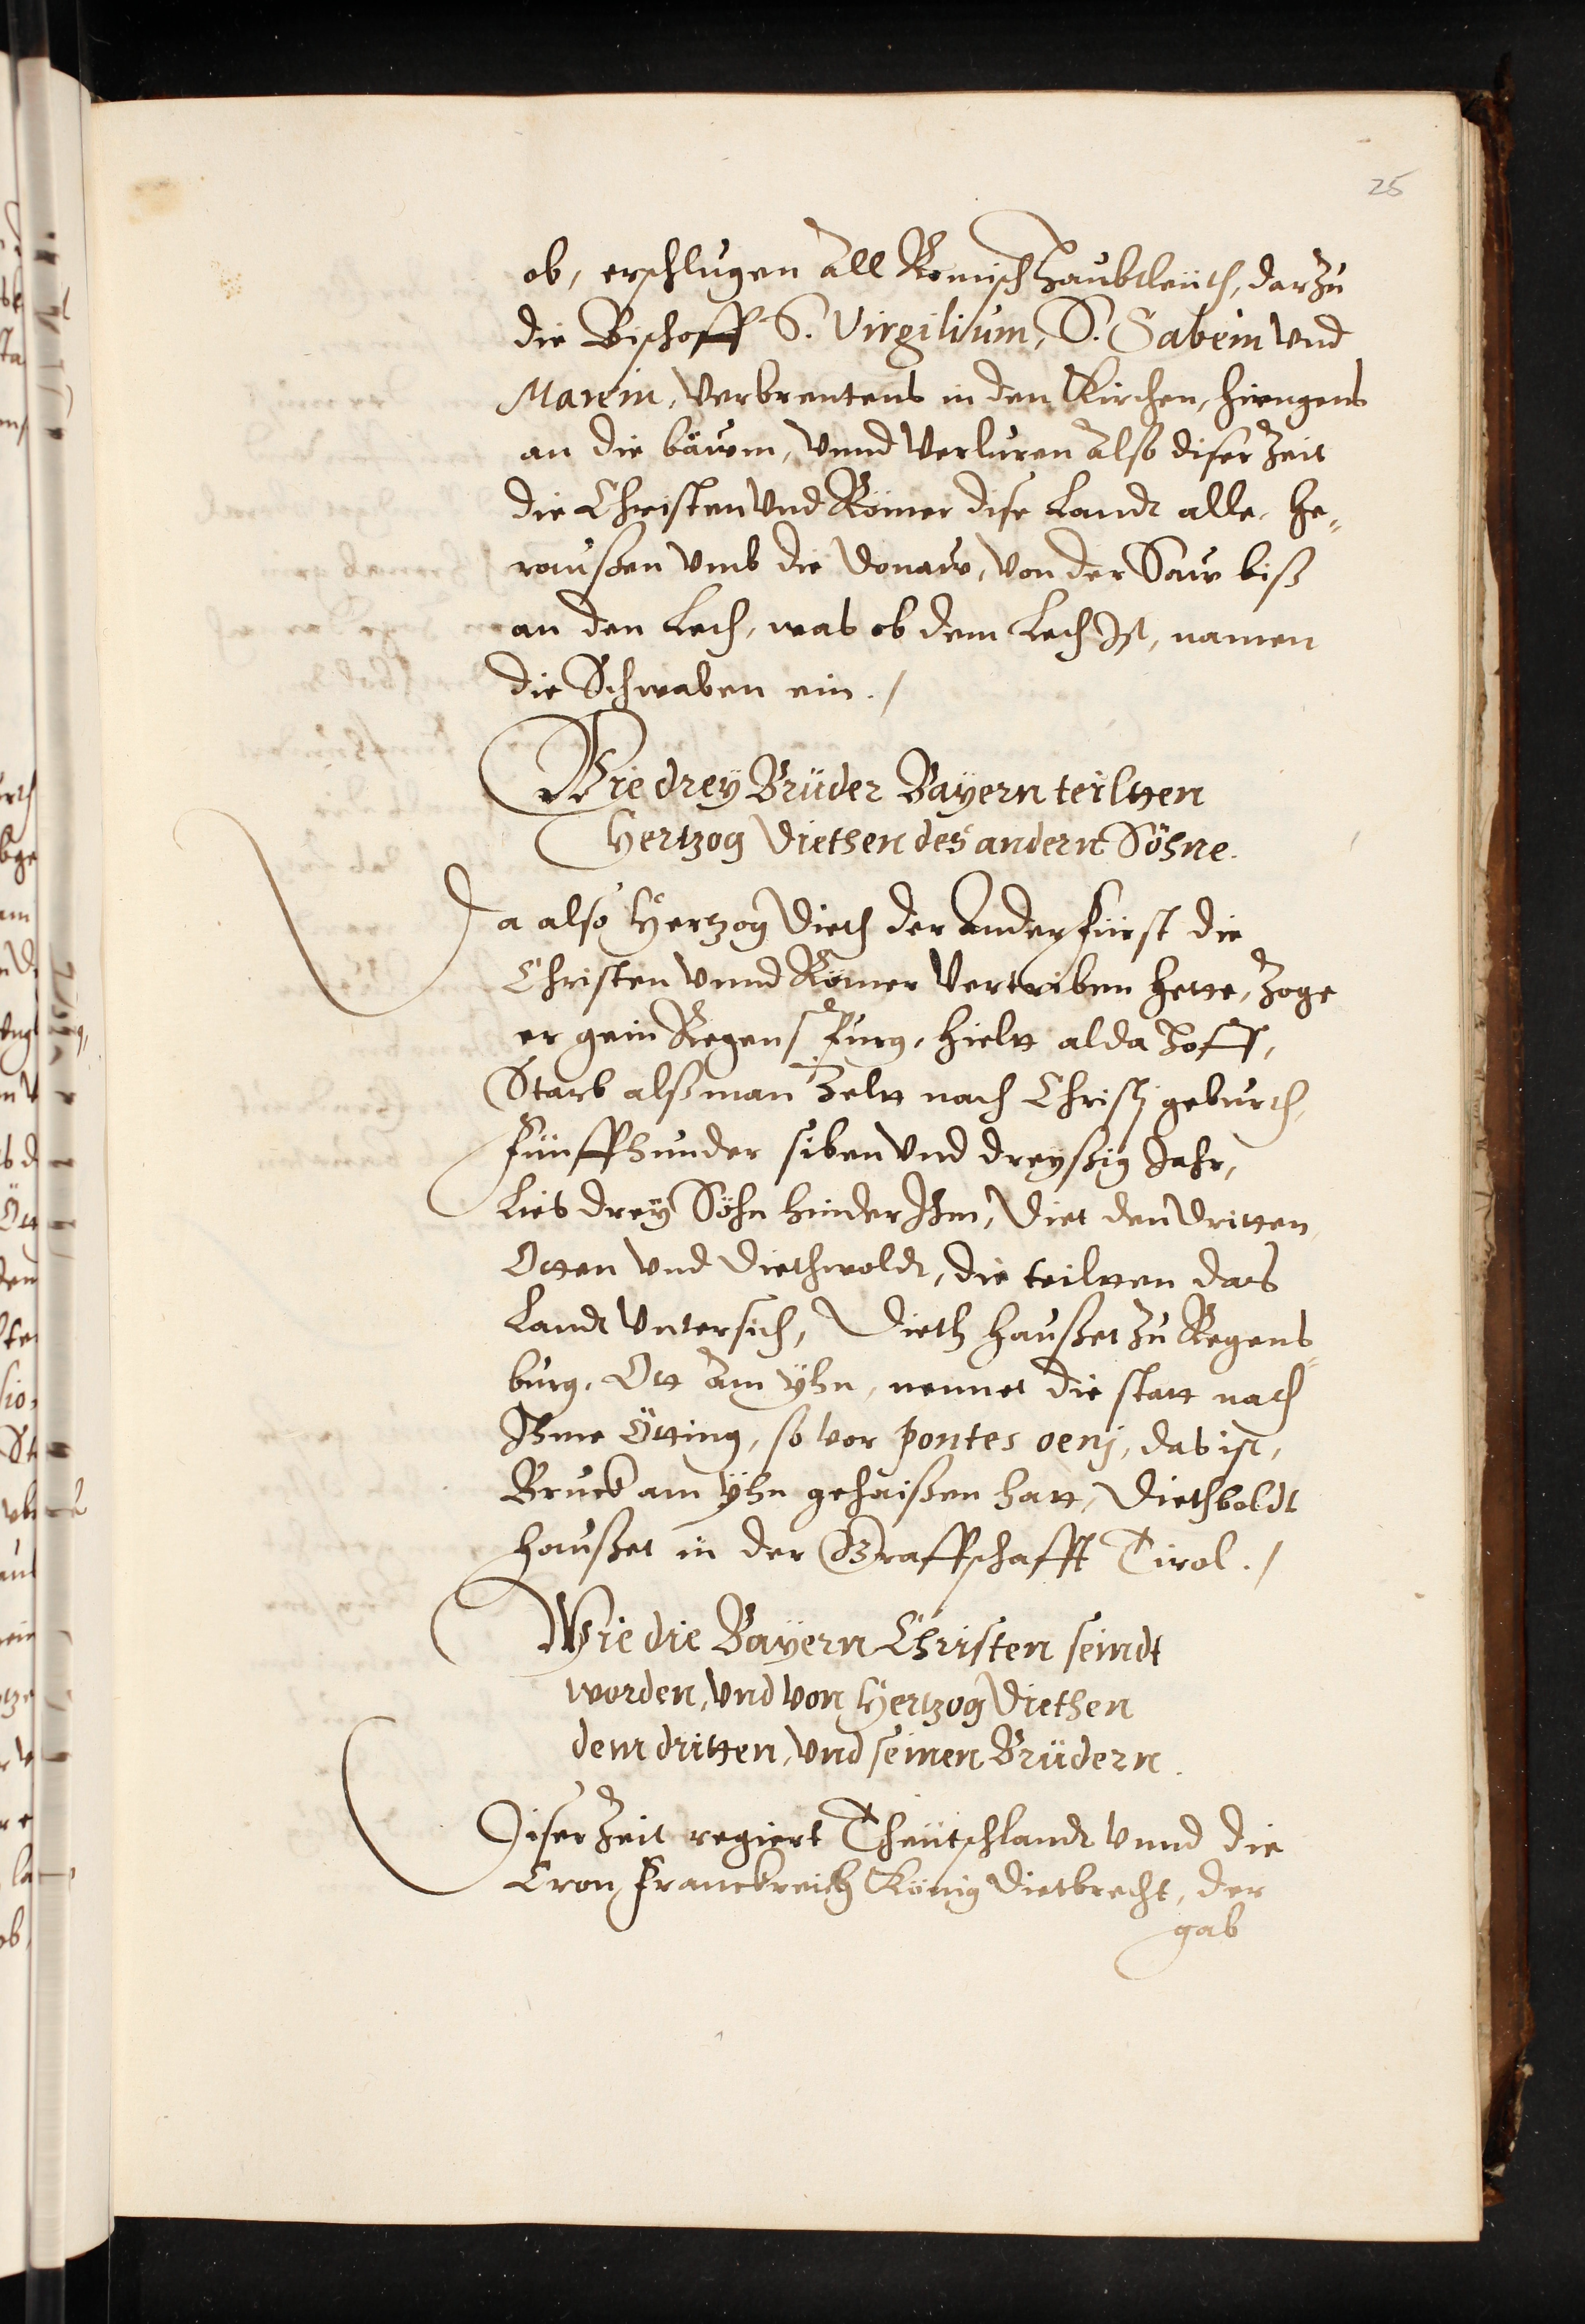 25
ob, erschlugen All Romisch Haubtleüth, darzu
die Bischoff S. Virgilium, S. Sabein vnd
Marein, Verbrentens in den Kirchen, hiengens
an die bäwm, vnnd Verluren Also diser Zeit
die Christen vnd Römer dise Landt alle, he-
raußen vmb die Donaw, von der Saw biß
an den Lech, was ob dem Lech Ist, namen
die Schwaben ein. /
Wie drey Brüder Bayern teiltten
Hertzog Diethen des andern Söhne.
Da also Hertzog Dieth der Ander fürst die
Christen vnnd Römer Vertriben hette, Zoge
er gein Regenspurg, hieltt alda Hoff,
Starb alß man Zeltt nach Christj geburth,
fünffhunder siben vnd dreyßig Jahr,
Lies drey Söhn hinder Ihm, Diet den dritten,
Otten vnd Diethwoldt, die teiltten das
Landt Vntersich, Dieth haußet zu Regens-
burg, Ott Am yhn, nennet die statt nach
Ihme Ötting, so vor pontes oenj, das ist,
Bruck am yhn gehaißen hatt, Diethboldt
haußet in der Graffschafft Tirol. /
Wie die Bayern Christen seindt
worden, vnd von Hertzog Diethen
dem dritten, vnd seinen Brüdern.
Diser Zeit regiert Theütschlandt vnnd die
Cron Franckreich König Dietbrecht, der
gab